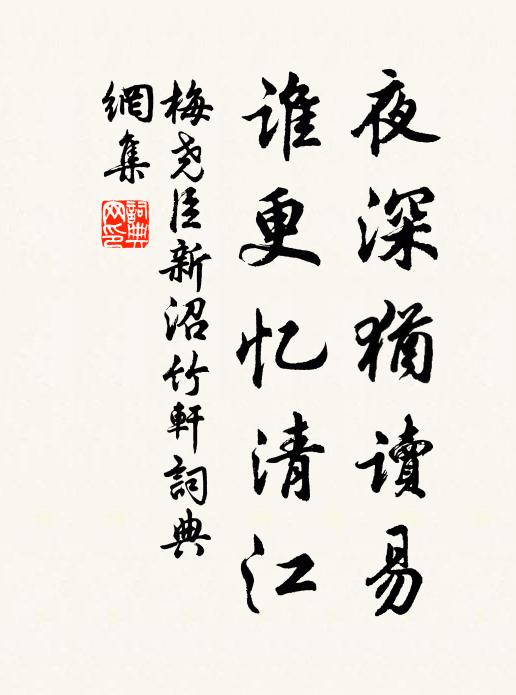 夜深猶讀易
誰更忆清江
梅尧臣新沼竹軒詞典
網集
詞典
网印